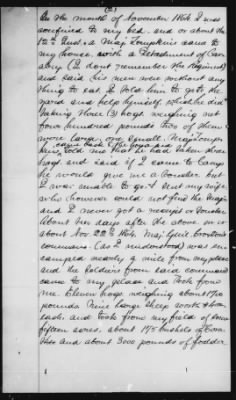 (2)
In the month of November 1864 I was
confined to my bed. and on or about the
18th Inst. a Maj. Tompkins came to
my house with a Detachment of Cav-
alry (I dont remember the Regiment)
and said his men were without any
thing to eat I told him to go to the
yard and help himself, which he did
Taking three (3) hogs weighing
four hundred pounds two of them
were large, one small. Maj Tomp-
kins came back after the hogs and
told me that he had taken three
hogs and said if I came to Camp
he would give me a Voucher. but
I was unable to go & sent my wife
who however could not find the Major
and I never got a receipt or Voucher
About two days after the above on or
about Nov 22nd 1864. Maj Genl
command (as I understood) was en-
camped nearly a mile from my place
and the soldiers from said command
came to my place and took from
me Eleven hogs weighing about 1700
pounds. Nine large sheep worth
each, and took from my field of
fifteen acres, about 175 bushels of Corn
and about 3000 pounds of fodder